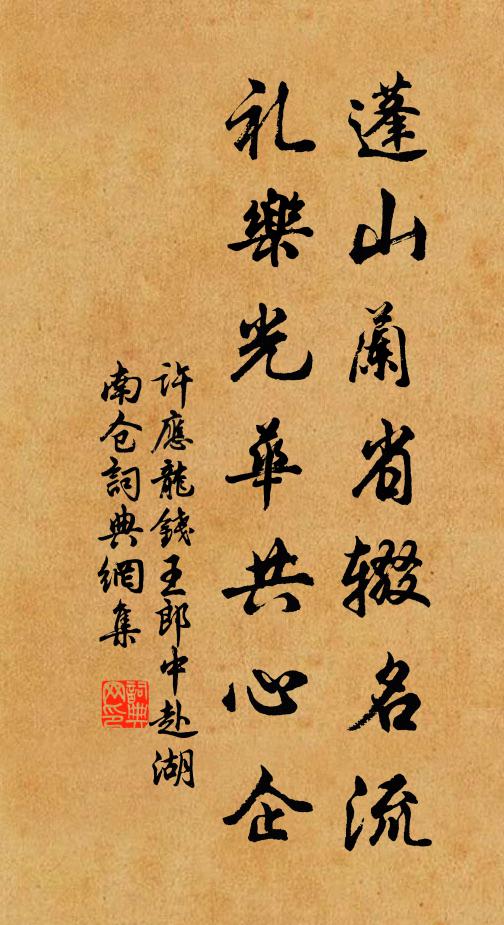 蓬山蘭省辍名流
礼樂光華共心企
許應龍錢王郎中赴湖
南仓詞典網集
詞典
网印